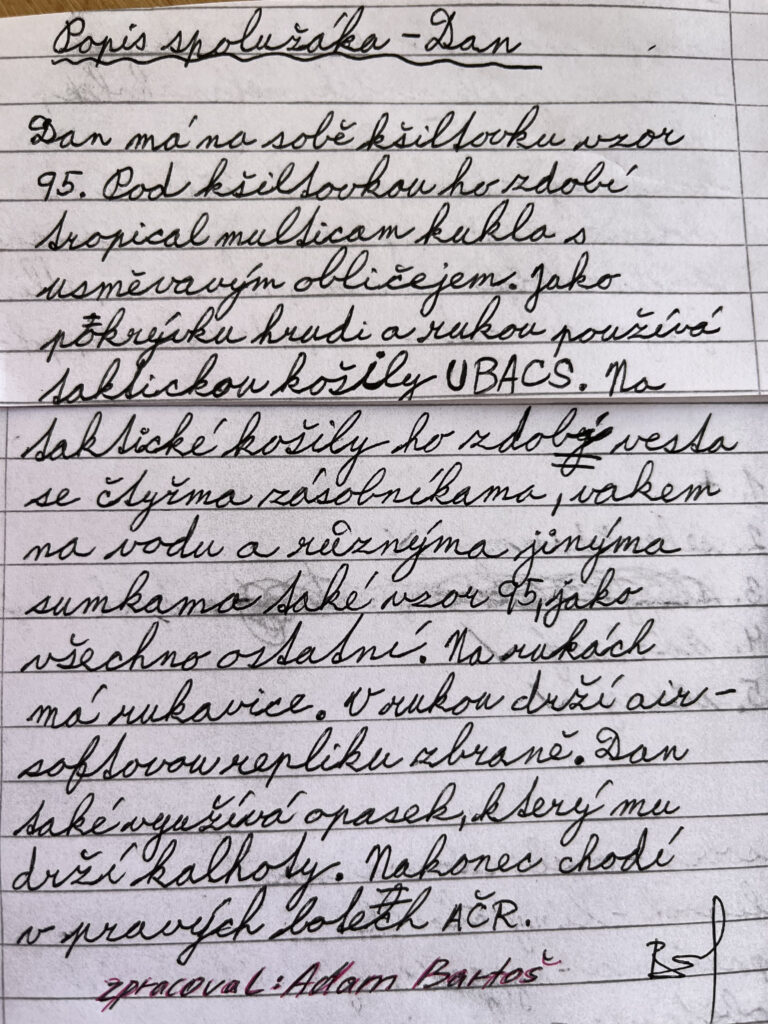 Popis spolužáka - Dan
Dan má na sobě kšiltovku vzor
95. Pod kšiltovkou ho zdobí
tropical multicam kukla s
usměvavým obličejem. Jako
pokrývku hrudi a rukou používá
taktickou košily UBACS. Na
taktické košily ho zdobý vesta
se čtyřma zásobníkama, vakem
na vodu a různýma jinýma
sumkama také vzor 95, jako
všechno ostatní. Na rukách
má rukavice. V rukou drží air-
softovou repliku zbraně. Dan
také využívá opasek, který mu
drží kalhoty. Nakonec chodí
v pravých botech AČR.
zpracoval: Adam Bartoš